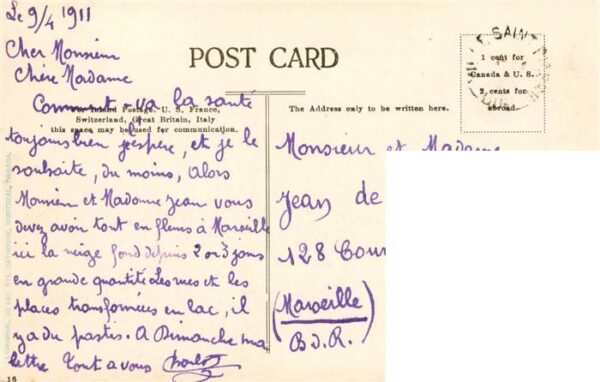 Le 9/4 1911
Cher Monsieur
Chère Madame
Comment-va la santé
toujours bien j'espère, et je le
souhaite, du moins, alors
Monsieur et Madame Jean vous
devez avoir tout en fleurs à Marseille
ici la neige fond depuis 2 or 3 jours
en grande quantité les rues et les
places transformées en lac, il
y a du pastis. A Dimanche ma
lettre Tout a vous
POST CARD
Inland Postage, U. S. France,
Switzerland, Great Britain, Italy
this space may be used for communication.
The Address only to be written here.
1 cent for
Canada & U. S.
2 cents for
abroad.
SAIN
Monsieur et Madame
Jean de
128 Cour
(Marseille)
B.d.R.
16